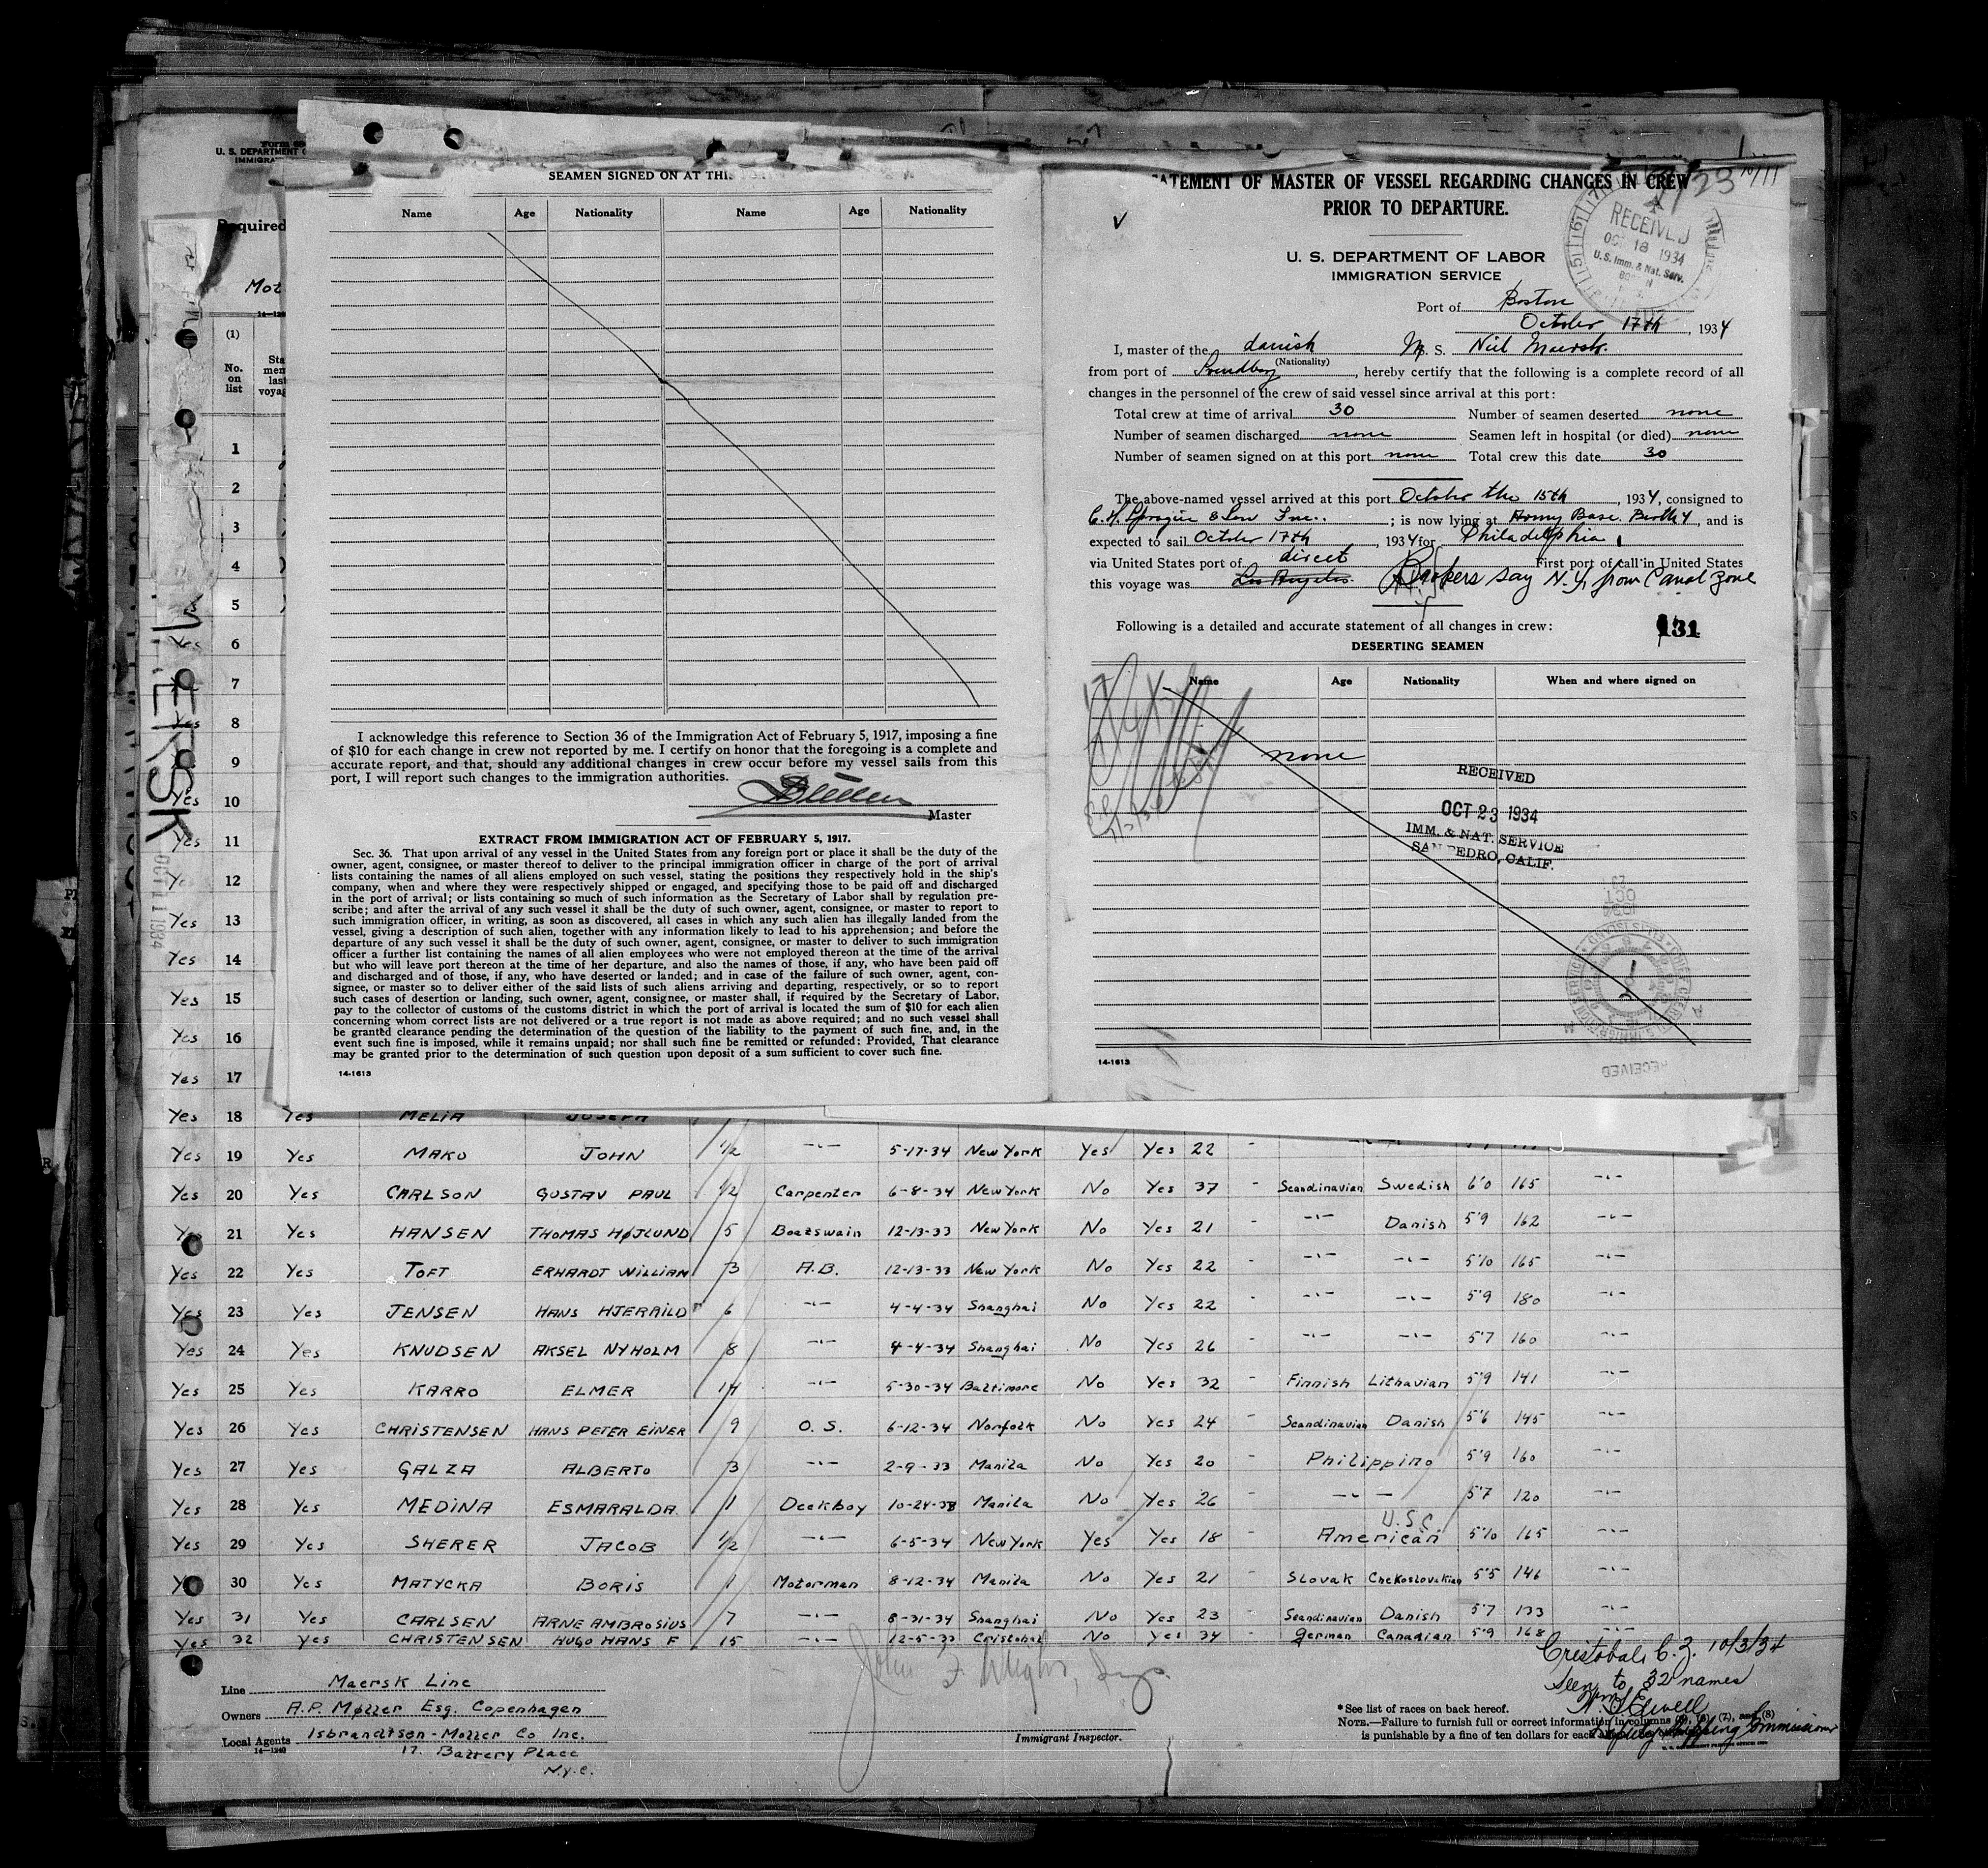 U. S. DEPARTMENT
IMMIGRA
Required
Mot
(1)
No. on list
Sta men last voyag
SEAMEN SIGNED ON AT THIS
Name Age Nationality Name Age Nationality
I acknowledge this reference to Section 36 of the Immigration Act of February 5, 1917, imposing a fine
of $10 for each change in crew not reported by me. I certify on honor that the foregoing is a complete and
accurate report, and that, should any additional changes in crew occur before my vessel sails from this
port, I will report such changes to the immigration authorities.
Master
EXTRACT FROM IMMIGRATION ACT OF FEBRUARY 5, 1917.
Sec. 36. That upon arrival of any vessel in the United States from any foreign port or place it shall be the duty of the
owner, agent, consignee, or master thereof to deliver to the principal immigration officer in charge of the port of arrival
lists containing the names of all aliens employed on such vessel, stating the positions they respectively hold in the ship's
company, when and where they were respectively shipped or engaged, and specifying those to be paid off and discharged
in the port of arrival; or lists containing so much of such information as the Secretary of Labor shall by regulation pre-
scribe; and after the arrival of any such vessel it shall be the duty of such owner, agent, consignee, or master to report to
such immigration officer, in writing, as soon as discovered, all cases in which any such alien has illegally landed from the
vessel, giving a description of such alien, together with any information likely to lead to his apprehension; and before the
departure of any such vessel it shall be the duty of such owner, agent, consignee, or master to deliver to such immigration
officer a further list containing the names of all alien employees who were not employed thereon at the time of the arrival
but who will leave port thereon at the time of her departure, and also the names of those, if any, who have been paid off
and discharged and of those, if any, who have deserted or landed; and in case of the failure of such owner, agent, con-
signee, or master so to deliver either of the said lists of such aliens arriving and departing, respectively, or so to report
such cases of desertion or landing, such owner, agent, consignee, or master shall, if required by the Secretary of Labor,
pay to the collector of customs of the customs district in which the port of arrival is located the sum of $10 for each alien
concerning whom correct lists are not delivered or a true report is not made as above required; and no such vessel shall
be granted clearance pending the determination of the question of the liability to the payment of such fine, and, in the
event such fine is imposed, while it remains unpaid; nor shall such fine be remitted or refunded: Provided, That clearance
may be granted prior to the determination of such question upon deposit of a sum sufficient to cover such fine.
14-1613
STATEMENT OF MASTER OF VESSEL REGARDING CHANGES IN CREW
PRIOR TO DEPARTURE.
RECEIVED
OCT 18 1934
U.S. Imm. & Nat. Serv.
U. S. DEPARTMENT OF LABOR
IMMIGRATION SERVICE
Port of Boston
October 17th, 1934
I, master of the danish M. S. Niel Maersk.
(Nationality)
from port of Svendborg, hereby certify that the following is a complete record of all
changes in the personnel of the crew of said vessel since arrival at this port:
Total crew at time of arrival 30 Number of seamen deserted none
Number of seamen discharged none Seamen left in hospital (or died) none
Number of seamen signed on at this port none Total crew this date 30
The above-named vessel arrived at this port October the 15th, 1934, consigned to
C. H. Sprague & Son Inc.; is now lying at Army Base. Berth 4, and is
expected to sail October 17th, 1934 for Philadelphia
via United States port of direct First port of call in United States
this voyage was Los Angeles. Brokers say N.Y. from Canal Zone
Following is a detailed and accurate statement of all changes in crew: 131
DESERTING SEAMEN
Name Age Nationality When and where signed on
none
RECEIVED
OCT 23 1934
IMM. & NAT. SERVICE
SAN PEDRO, CALIF.
RECEIVED
14-1613
MAERSK
OCT 11 1934
1
2
3
4
5
Yes 6
7
Yes 8
9
Yes 10
Yes 11
Yes 12
Yes 13
Yes 14
Yes 15
Yes 16
Yes 17
Yes 18 Yes MELIA JOSEPH
Yes 19 Yes MAKO JOHN 1/2 -"- 5-17-34 New York Yes Yes 22 -
Yes 20 Yes CARLSON GUSTAV PAUL 1/2 Carpenter 6-8-34 New York No Yes 37 - Scandinavian Swedish 6'0 165 -"-
Yes 21 Yes HANSEN THOMAS HØJLUND 5 Boatswain 12-13-33 New York No Yes 21 - -"- Danish 5'9 162 -"-
Yes 22 Yes TOFT ERHARDT WILLIAM 3 A.B. 12-13-33 New York No Yes 22 - -"- -"- 5'10 165 -"-
Yes 23 Yes JENSEN HANS HJERRILD 6 -"- 4-4-34 Shanghai No Yes 22 - -"- -"- 5'9 180 -"-
Yes 24 Yes KNUDSEN AKSEL NYHOLM 8 -"- 4-4-34 Shanghai No Yes 26 - -"- -"- 5'7 160 -"-
Yes 25 Yes KARRO ELMER 14 -"- 5-30-34 Baltimore No Yes 32 - Finnish Lithavian 5'9 141 -"-
Yes 26 Yes CHRISTENSEN HANS PETER EINER 9 O. S. 6-12-34 Norfolk No Yes 24 - Scandinavian Danish 5'6 145 -"-
Yes 27 Yes GALZA ALBERTO 3 -"- 2-9-33 Manila No Yes 20 - Philippino 5'9 160 -"-
Yes 28 Yes MEDINA ESMARALDA 1 Deckboy 10-24-33 Manila No Yes 26 - -"- 5'7 120 -"-
U.S.C.
Yes 29 Yes SHERER JACOB 1/2 -"- 6-5-34 New York Yes Yes 18 - American 5'10 165 -"-
Yes 30 Yes MATYCKA BORIS 1 Motorman 8-12-34 Manila No Yes 21 - Slovak Chekoslovakian 5'5 146 -"-
Yes 31 Yes CARLSEN ARNE AMBROSIUS 7 -"- 8-31-34 Shanghai No Yes 23 - Scandinavian Danish 5'7 133 -"-
Yes 32 Yes CHRISTENSEN HUGO HANS F 15 -"- 12-5-33 Cristobal No Yes 34 - German Canadian 5'9 168 -"-
Cristobal C.Z. 10/3/34
Seen to 32 names
Deputy Shipping Commissioner
Line Maersk Line
Owners A.P. Møller Esq. Copenhagen
Local Agents Isbrandtsen-Moller Co Inc.
14-1240
17. Battery Place
N.Y.C.
Immigrant Inspector.
*See list of races on back hereof.
NOTE.—Failure to furnish full or correct information in columns (7), and (8)
is punishable by a fine of ten dollars for each